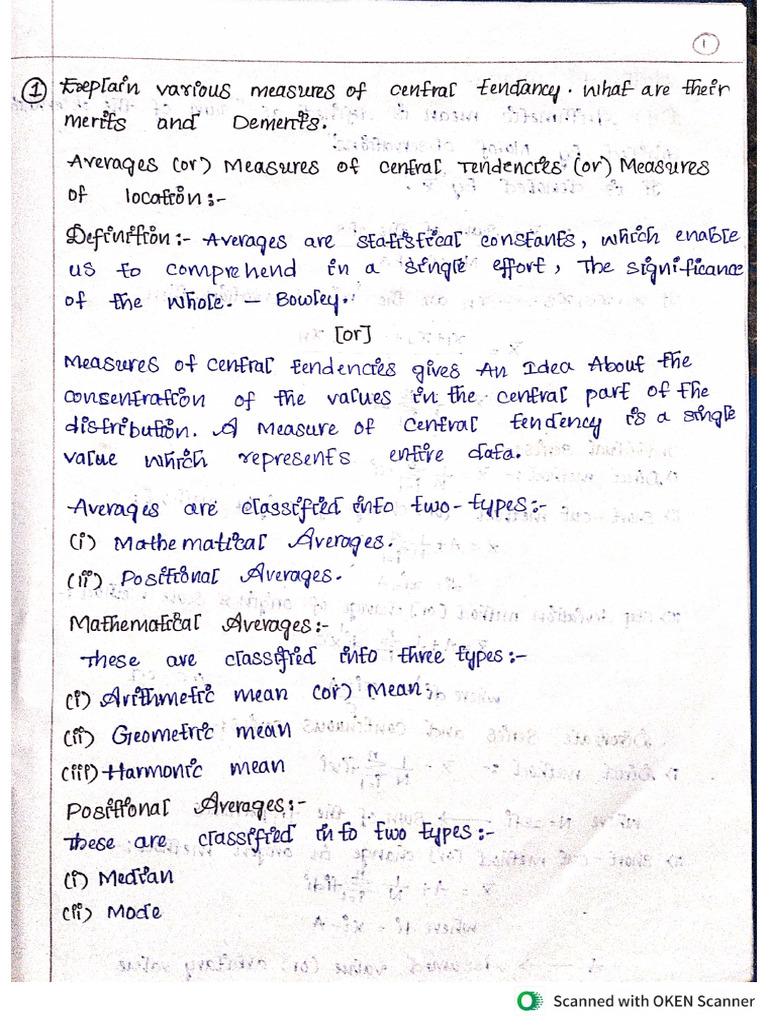 1
① Explain various measures of central tendancy. What are their
merits and Dements.
Averages (or) Measures of central Tendencies (or) Measures
of location :-
Definition :- Averages are statistical constants, which enable
us to comprehend in a single effort, The significance
of the whole. - Bowley.
[or]
Measures of central tendencies gives An Idea About the
consentration of the values in the central part of the
distribution. A Measure of central tendency is a single
value which represents entire data.
Averages are classified into two-types :-
(i) Mathematical Averages.
(ii) Positional Averages.
Mathematical Averages :-
These are classified into three types :-
(i) Arithmetic mean (or) Mean :
(ii) Geometric mean
(iii) Harmonic mean
Positional Averages :-
These are classified into two types :-
(i) Median
(ii) Mode
Scanned with OKEN Scanner